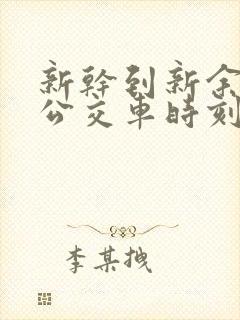 新幹到新余
公交車時刻
李某拽